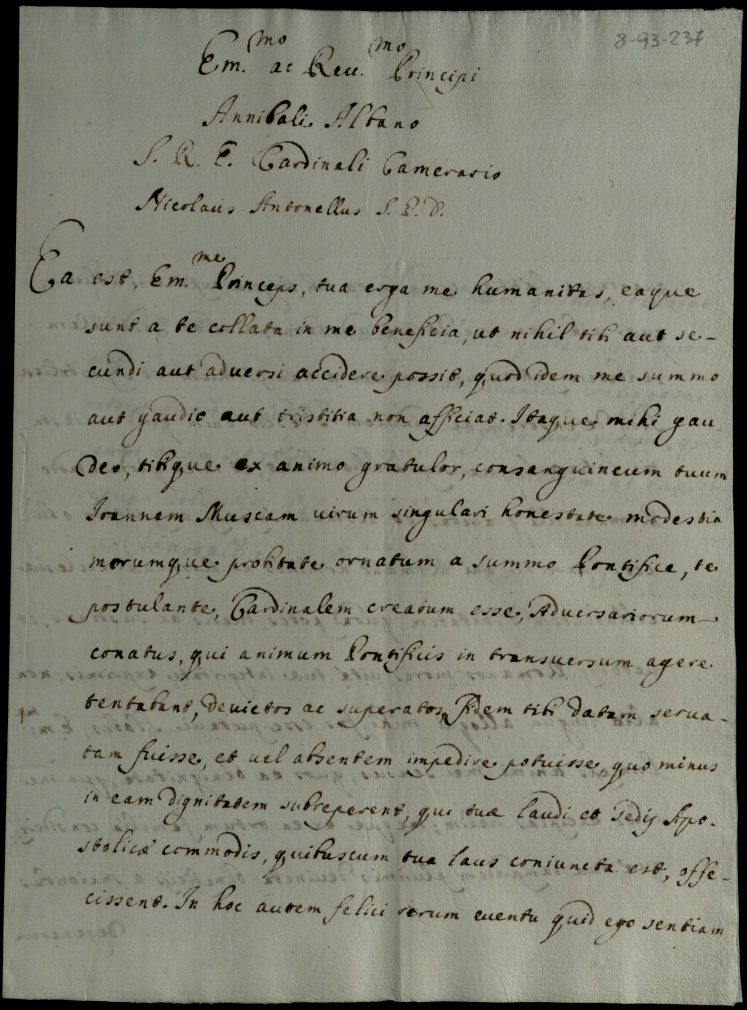 8-93-237
Em.mo ac Rev.mo Principi
Annibali Albano
S. R. E. Cardinali Camerario
Nicolaus Antonellus S. P. D.
Ea est, Em.me Princeps, tua erga me humanitas, eaque
sunt a te collata in me beneficia, ut nihil tibi aut se-
cundi aut adversi accidere possit, quod idem me summo
aut gaudio aut tristitia non afficiat. Itaque mihi gau-
deo, tibique ex animo gratulor, consanguineum tuum
Ioannem Muscam uirum singulari honestate modestia
morumque probitate ornatum a summo Pontifice, te
postulante, Cardinalem creatum esse, Aduersariorum
conatus, qui animum Pontificis in transuersum agere
tentabant, deuictos ac superatos, fidem tibi datam serua-
tam fuisse, et uel absentem impedire potuisse, quo minus
in eam dignitatem subreperent, qui tuæ laudi et Sedis Apo-
stolicæ commodis, quibuscum tua laus coniuncta est, offe-
cissent. In hoc autem felici rerum euentu quid ego sentiam